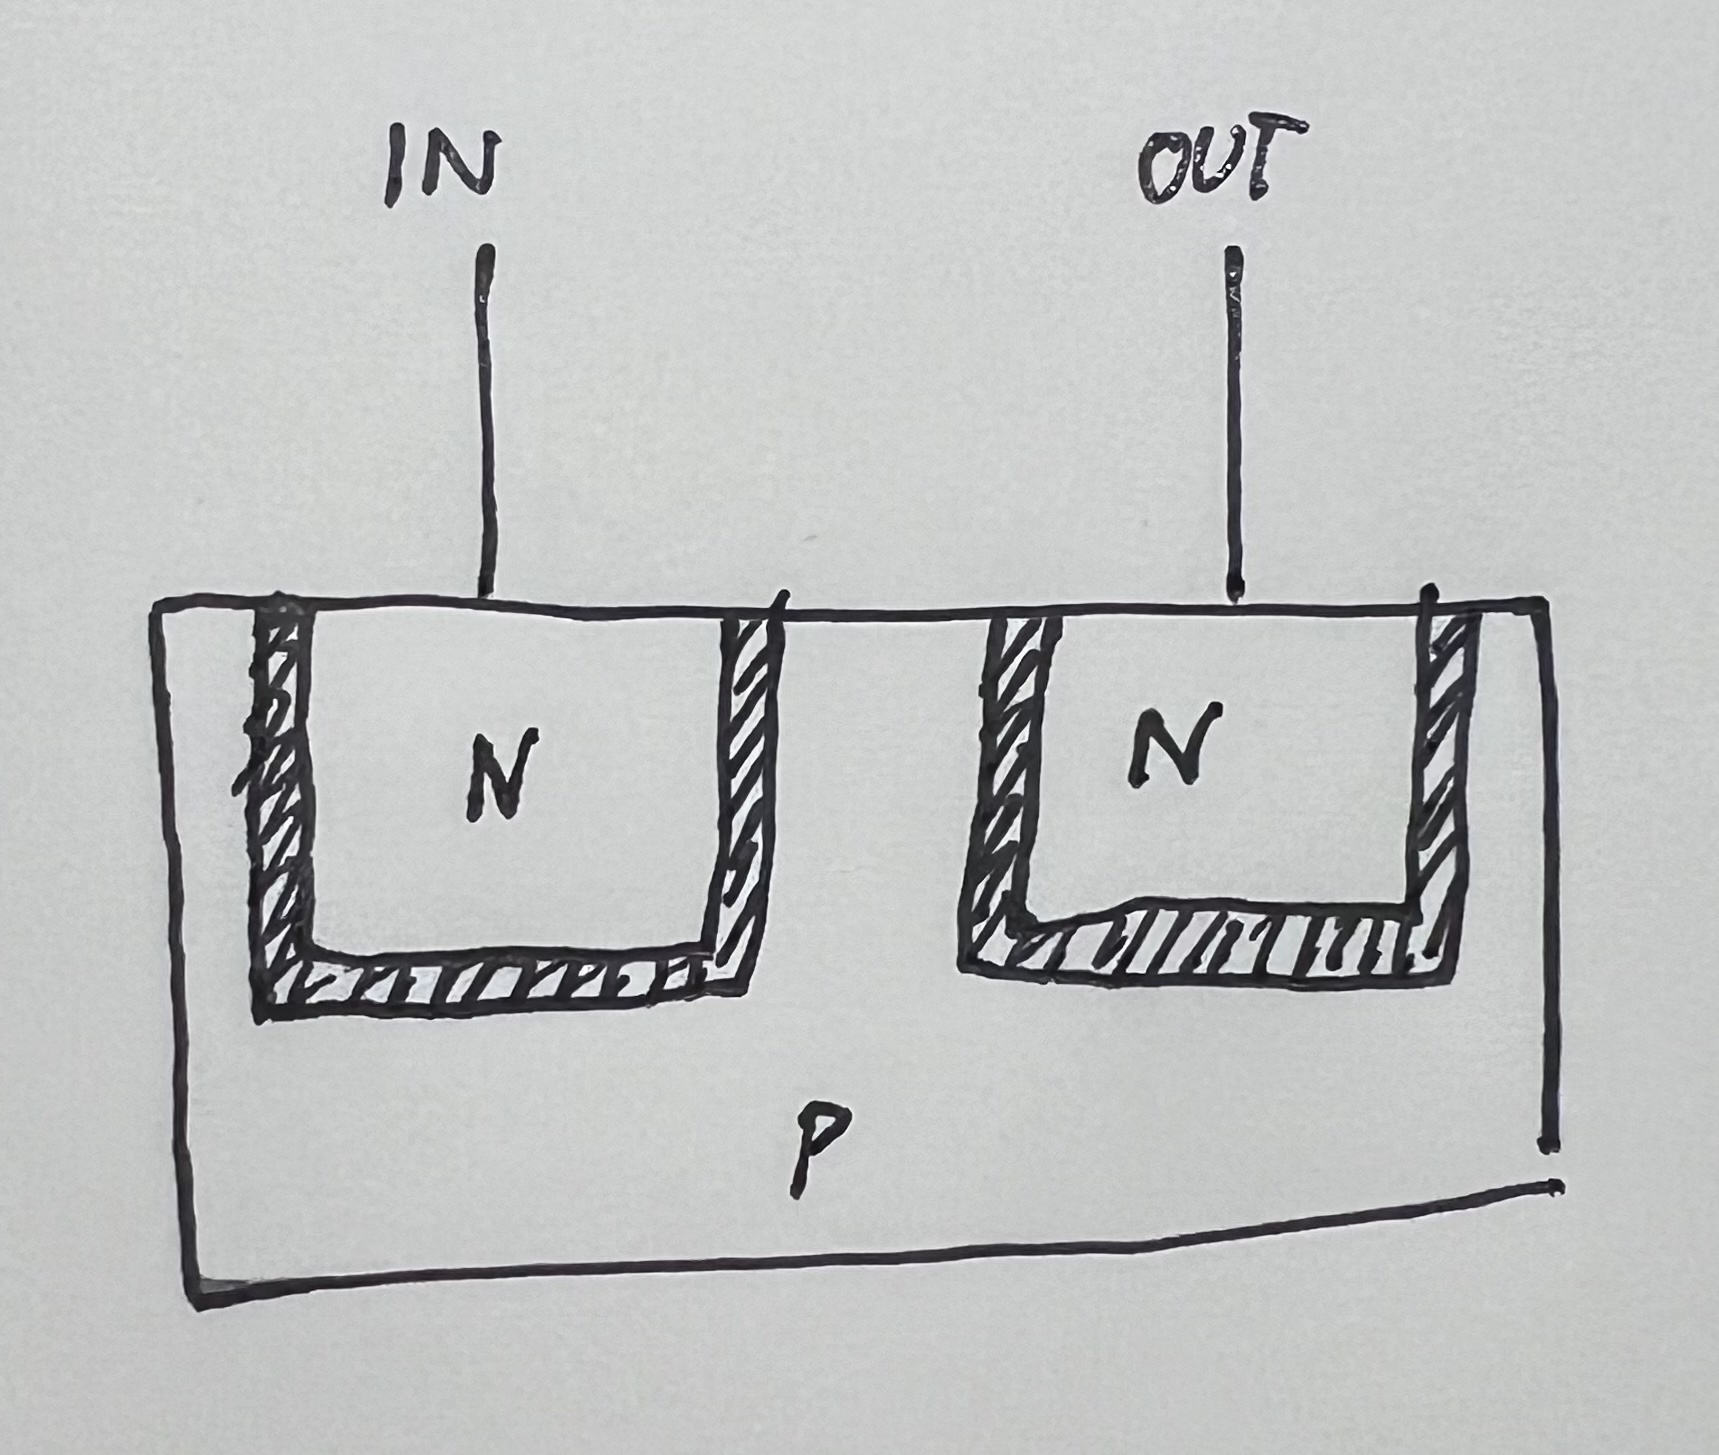 IN OUT
N N
P